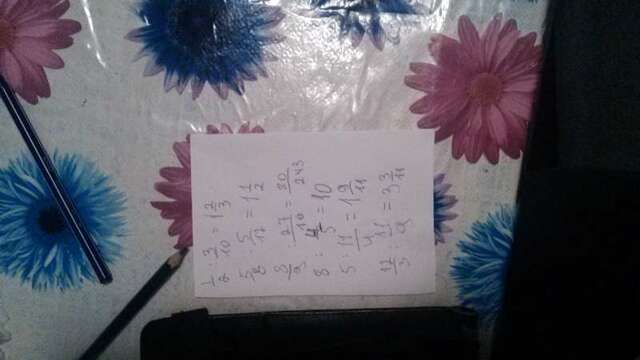 1/2 : 3/10 = 1 2/3
5/8 : 5/12 = 1 1/2
8/9 : 27/10 = 80/243
8 : 4/5 = 10
5 : 11/4 = 1 9/11
12/3 : 11/9 = 3 3/11